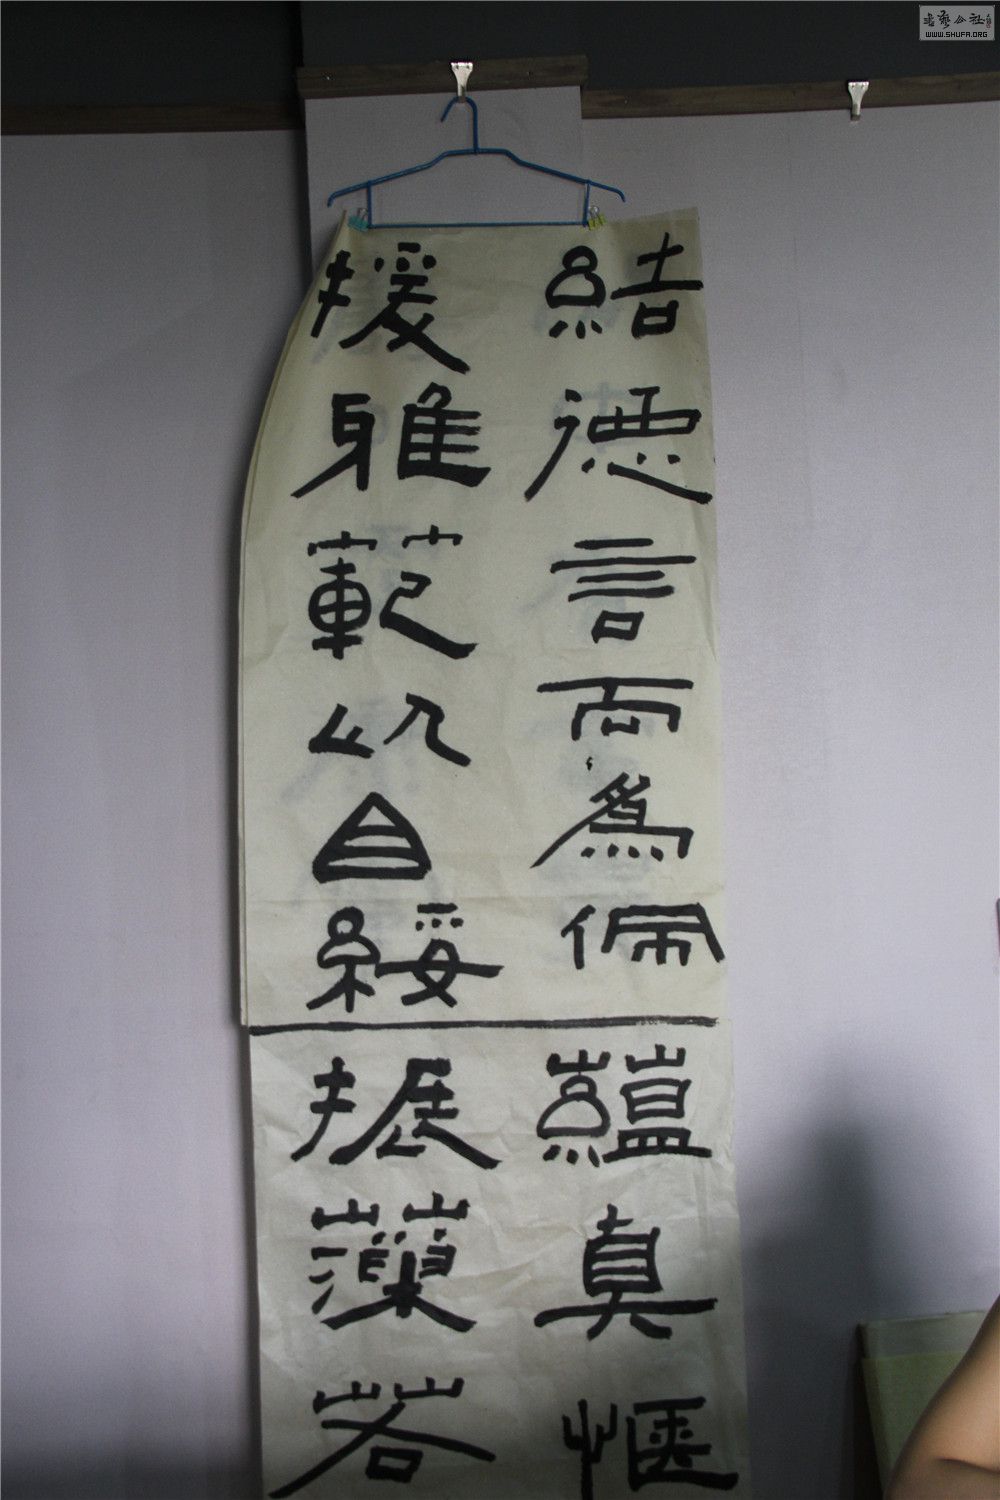 結德言而爲佩蘊真愜
援雅範以自綏振藻若
書藝公社
WWW.SHUFA.ORG